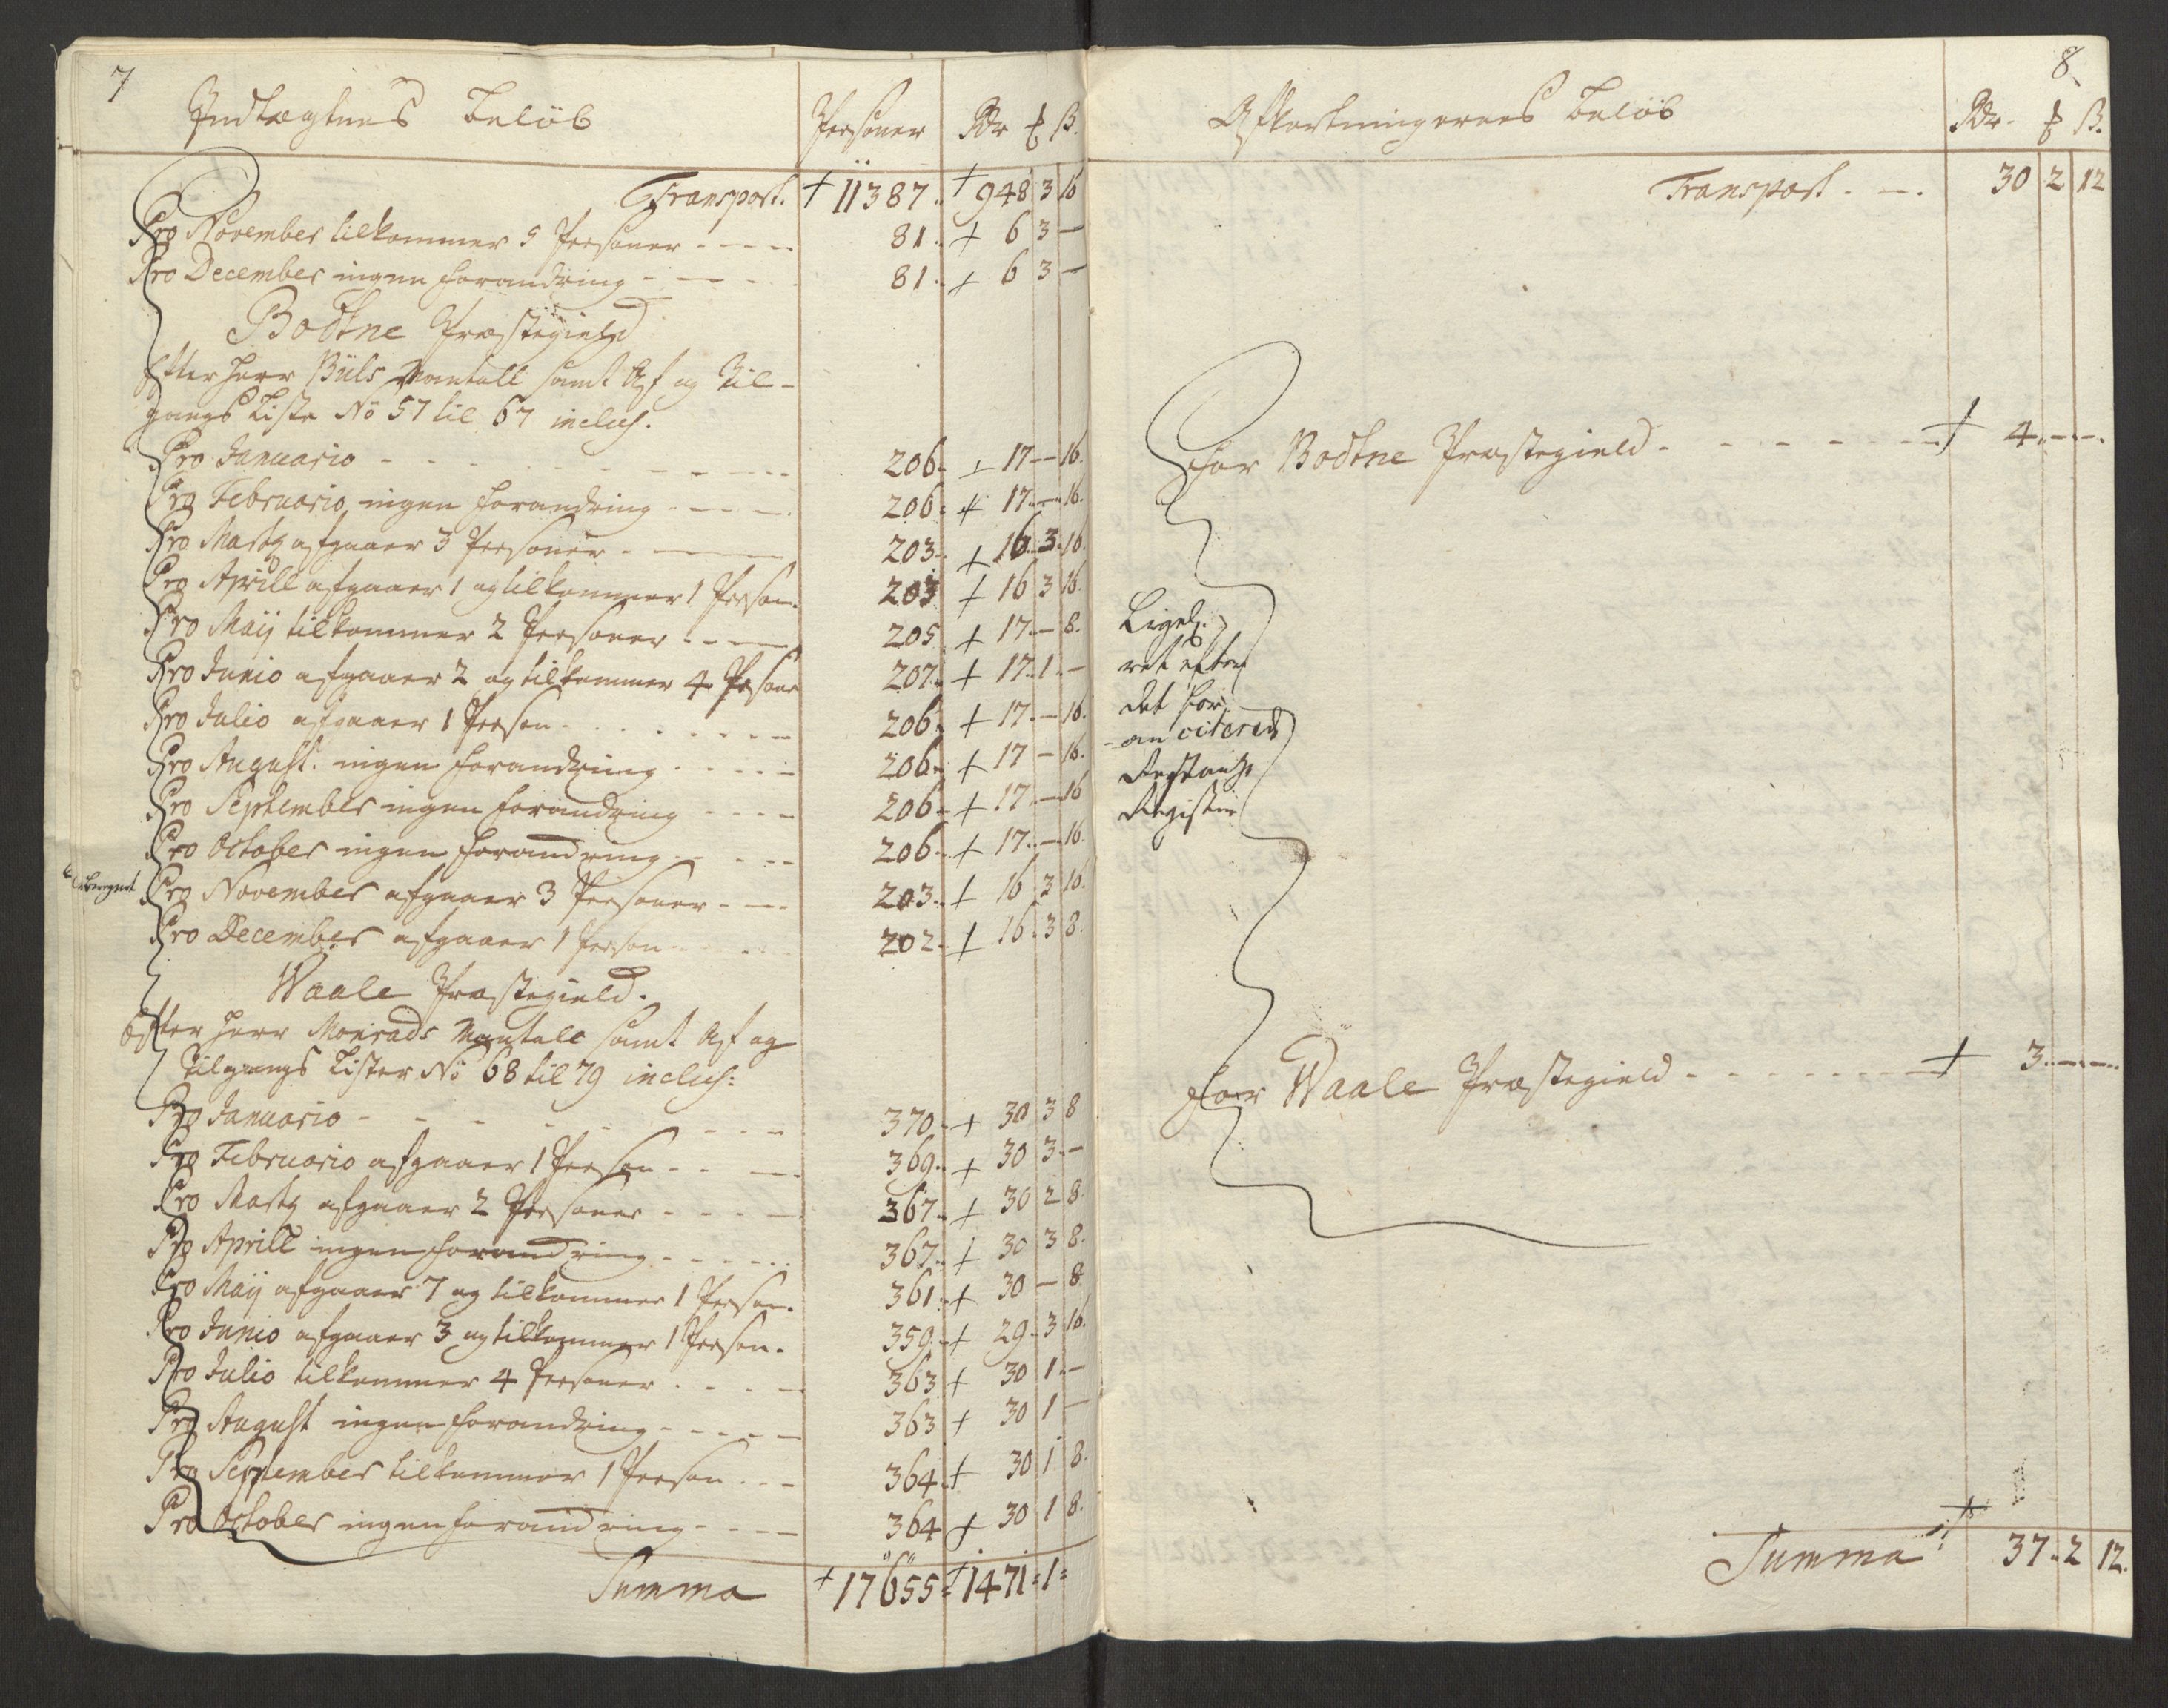 7
Indtægtnes Beløb Personer Rdr ort ß.
Transport. + 11387. + 948 3 16
Pro November tilkommer 5 Personer - - - - 81. + 6 3 —
Pro December ingen forandring - - - 81. + 6 3 —
Bodtne Præstegield
Efter Herr Büls Mantall samt Af og Til-
gangs Liste No 57 til 67 inclus.
Pro Januario - - - - - 206. + 17 — 16.
Pro Februario ingen forandring - - - - 206. + 17. — 16.
Pro Martij afgaaer 3 Personer - - - 203. + 16. 3. 16.
Pro Aprill afgaaer 1 og tilkommer 1 Person. 203 + 16 3 16.
Pro Maij tilkommer 2 Personer - - - 205 + 17. — 8.
Pro Junio afgaaer 2 og tilkommer 4 Persone 207. + 17. 1. —
Pro Julio afgaaer 1 Person - - - - 206. + 17. — 16.
Pro August. ingen forandring - - - - 206. + 17 — 16.
Pro September ingen forandring - - - - 206. + 17. — 16
Pro October ingen forandring - - - - 206. + 17. — 16.
Pro November afgaaer 3 Personer - - - 203. + 16 3 16.
Pro December afgaaer 1 Person - - - 202. + 16. 3 8.
Waale Præstegield.
Efter Herr Monrads Mantall samt Af og
Tilgangs Lister No 68 til 79 inclus:
Pro Januario - - - - - 370. + 30 3 8
Pro Februario afgaaer 1 Person - - - 369. + 30 3. —
Pro Martij afgaaer 2 Personer - - - - 367. + 30 2 8.
Pro Aprill ingen forandring - - - - - 367. + 30 3 8.
Pro Maij afgaaer 7 og tilkommer 1 Person. 361. + 30 — 8
Pro Junio afgaaer 3 og tilkommer 1 Person. 359. + 29. 3 16.
Pro Julio tilkommer 4 Personer - - - - 363 + 30 1. —
Pro August ingen forandring - - - - - 363 + 30 1 —
Pro September tilkommer 1 Person - - - 364. + 30 1 8.
Pro October ingen forandring - - - - 364 + 30 1 8.
Summa + 17655 = + 1471 = 1 =
8
Afkortningernes Beløb Rdr. ort ß.
Transport - - - 30 2 12
For Bodtne Præstegield - - - - - + 4. — —
Ligel.
ret efter
det for
an citered
Restantz
Register
For Waale Præstegield - - - - - + 3. — —
Summa 37. 2 12.